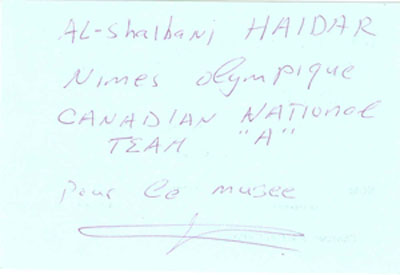 AL-Shaibani HAIDAR
Nimes olympique
CANADIAN NATIONAL
TEAM "A"
pour le musee